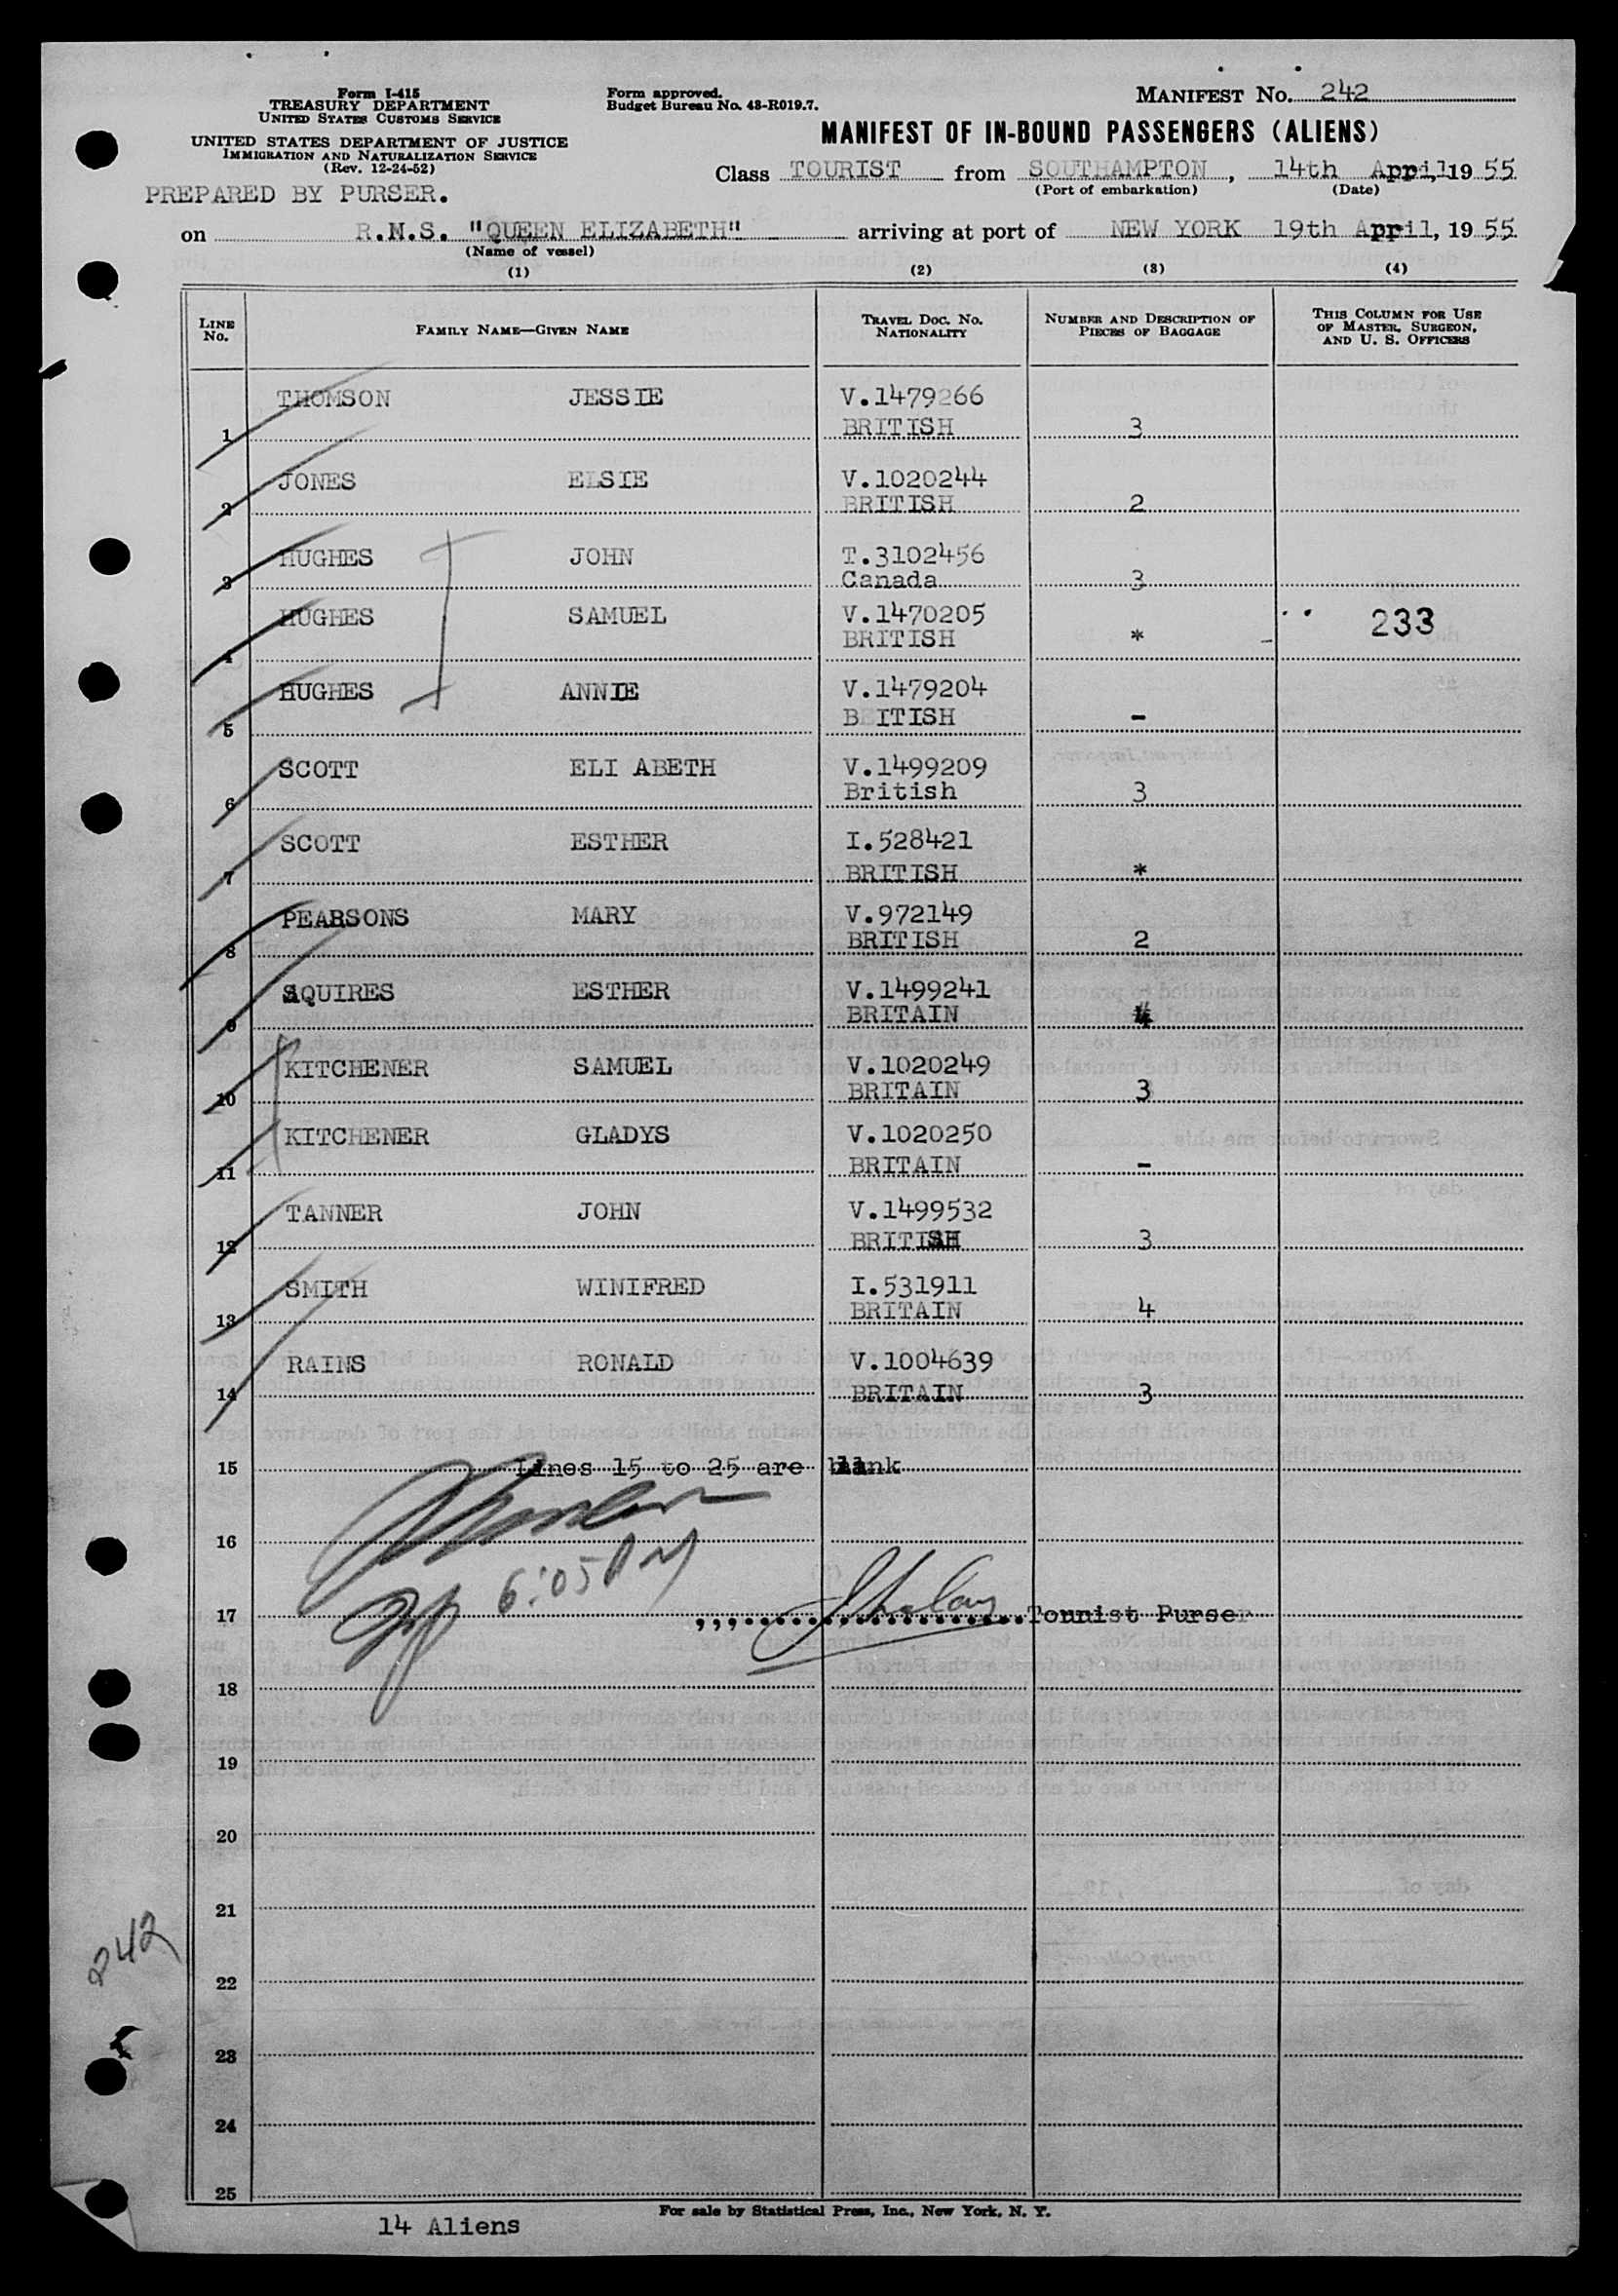 Form I-415
TREASURY DEPARTMENT
UNITED STATES CUSTOMS SERVICE
UNITED STATES DEPARTMENT OF JUSTICE
IMMIGRATION AND NATURALIZATION SERVICE
(Rev. 12-24-52)
PREPARED BY PURSER.
Form approved.
Budget Bureau No. 43-R019.7.
MANIFEST No. 242
MANIFEST OF IN-BOUND PASSENGERS (ALIENS)
Class TOURIST from SOUTHAMPTON, 14th April, 1955
(Port of embarkation) (Date)
on R.M.S. "QUEEN ELIZABETH" arriving at port of NEW YORK 19th April, 1955
(Name of vessel)
(1) (2) (3) (4)
LINE No. FAMILY NAME—GIVEN NAME TRAVEL DOC. No. NATIONALITY NUMBER AND DESCRIPTION OF PIECES OF BAGGAGE THIS COLUMN FOR USE OF MASTER, SURGEON, AND U. S. OFFICERS
THOMSON JESSIE V.1479266
1 BRITISH 3
JONES ELSIE V.1020244
2 BRITISH 2
HUGHES JOHN T.3102456
3 Canada 3
HUGHES SAMUEL V.1470205 233
4 BRITISH *
HUGHES ANNIE V.1479204
5 B ITISH -
SCOTT ELI ABETH V.1499209
6 British 3
SCOTT ESTHER I.528421
7 BRITISH *
PEARSONS MARY V.972149
8 BRITISH 2
SQUIRES ESTHER V.1499241
9 BRITAIN 4
KITCHENER SAMUEL V.1020249
10 BRITAIN 3
KITCHENER GLADYS V.1020250
11 BRITAIN -
TANNER JOHN V.1499532
12 BRITISH 3
SMITH WINIFRED I.531911
13 BRITAIN 4
RAINS RONALD V.1004639
14 BRITAIN 3
15 Lines 15 to 25 are blank
16
6:05 PM
17 Tourist Purser
18
19
20
21
242
22
23
24
25
For sale by Statistical Press, Inc., New York, N. Y.
14 Aliens